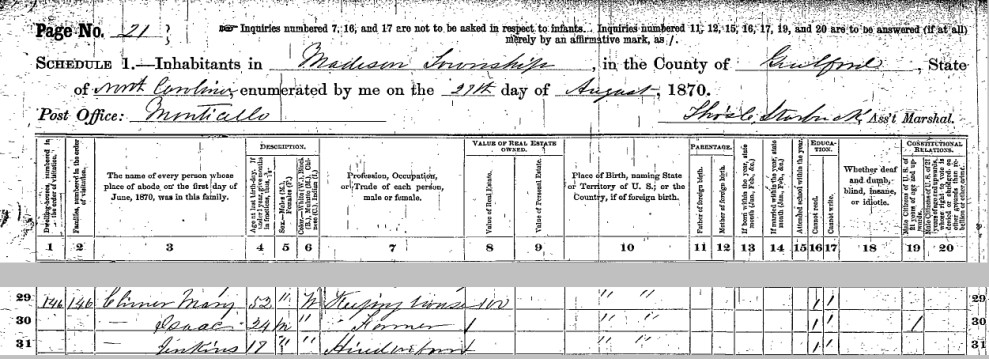 Page No. 21
☞ Inquiries numbered 7, 16, and 17 are not to be asked in respect to infants. Inquiries numbered 11, 12, 15, 16, 17, 19, and 20 are to be answered (if at all) merely by an affirmative mark, as /.
SCHEDULE 1.—Inhabitants in Madison Township, in the County of Guilford, State
of North Carolina, enumerated by me on the 29th day of August, 1870.
Post Office: Monticello
Ass't Marshal.
DESCRIPTION. VALUE OF REAL ESTATE OWNED. PARENTAGE. EDUCATION. CONSTITUTIONAL RELATIONS.
Dwelling-houses, numbered in the order of visitation.
Families, numbered in the order of visitation.
The name of every person whose place of abode on the first day of June, 1870, was in this family.
Age at last birth-day. If under 1 year, give months in fractions, thus, 3/12
Sex.—Males (M.), Females (F.)
Color.—White (W.), Black (B.), Mulatto (M.), Chinese (C.), Indian (I.)
Profession, Occupation, or Trade of each person, male or female.
Value of Real Estate.
Value of Personal Estate.
Place of Birth, naming State or Territory of U. S.; or the Country, if of foreign birth.
Father of foreign birth.
Mother of foreign birth.
If born within the year, state month (Jan., Feb., &c.)
If married within the year, state month (Jan., Feb., &c.)
Attended school within the year.
Cannot read.
Cannot write.
Whether deaf and dumb, blind, insane, or idiotic.
Male Citizens of U. S. of 21 years of age and upwards.
Male Citizens of U. S. of 21 years of age and upwards, whose right to vote is denied or abridged on other grounds than rebellion or other crime.
1 2 3 4 5 6 7 8 9 10 11 12 13 14 15 16 17 18 19 20
29 146 146 Mary 52 " W Keeping house 100 " " / / 29
30 — Isaac 24 m " Farmer " " / 30
31 — Jenkins 17 " " " " / / 31